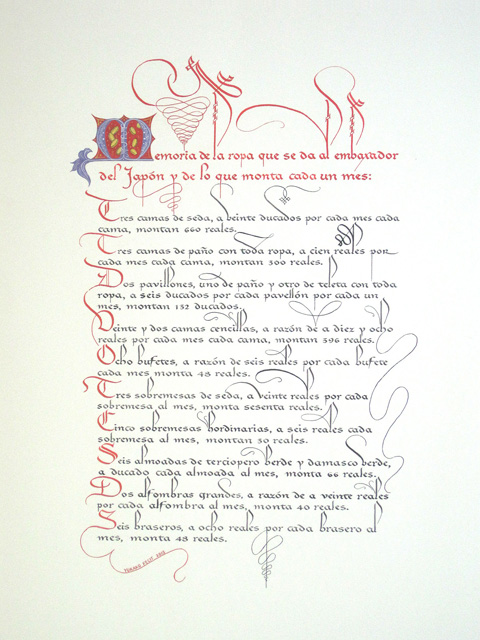 Memoria de la ropa que se da al embaxador
del Japón y de lo que monta cada un mes:
Tres camas de seda, a beinte ducados por cada mes cada
cama, montan 660 reales.
Tres camas de paño con toda ropa, a cien reales por
cada mes cada cama, montan 300 reales.
Dos pavillones, uno de paño y otro de teleta con toda
ropa, a seis ducados por cada pavellón por cada un
mes, montan 132 ducados.
Veinte y dos camas cencillas, a razón de a diez y ocho
reales por cada mes cada cama, montan 396 reales.
Ocho bufetes, a razón de seis reales por cada bufete
cada mes monta 48 reales.
Tres sobremesas de seda, a veinte reales por cada
sobremesa al mes, monta sesenta reales.
Cinco sobremesas hordinarias, a seis reales cada
sobremesa al mes, montan 30 reales.
Seis almoadas de terciopero berde y damasco berde,
a ducado cada almoada al mes, monta 66 reales.
Dos alfombras grandes, a razón de a veinte reales
por cada alfombra al mes, monta 40 reales.
Seis braseros, a ocho reales por cada brasero al
mes, monta 48 reales.